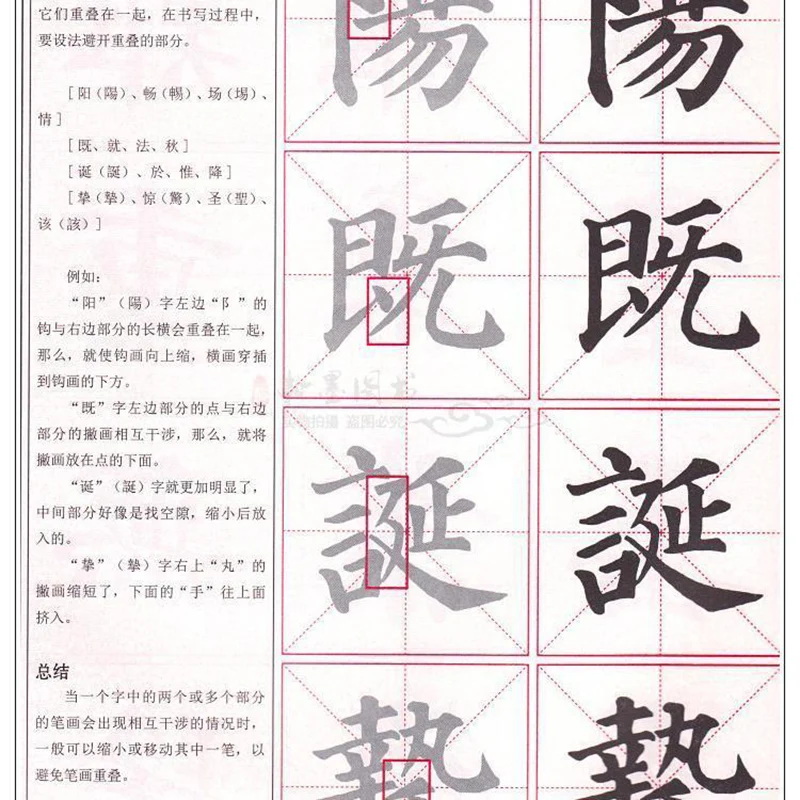 它们重叠在一起，在书写过程中，
要设法避开重叠的部分。
［阳（陽）、畅（暢）、场（場）、
情］
［既、就、法、秋］
［诞（誕）、於、惟、降］
［挚（摯）、惊（驚）、圣（聖）、
该（該）］
例如：
“阳”（陽）字左边“阝”的
钩与右边部分的长横会重叠在一起，
那么，就使钩画向上缩，横画穿插
到钩画的下方。
“既”字左边部分的点与右边
部分的撇画相互干涉，那么，就将
撇画放在点的下面。
“诞”（誕）字就更加明显了，
中间部分好像是找空隙，缩小后放
入的。
“挚”（摯）字右上“丸”的
撇画缩短了，下面的“手”往上面
挤入。
总结
当一个字中的两个或多个部分
的笔画会出现相互干涉的情况时，
一般可以缩小或移动其中一笔，以
避免笔画重叠。
陽 陽
既 既
誕 誕
摯 摯
墨图书
实物拍摄 盗图必究